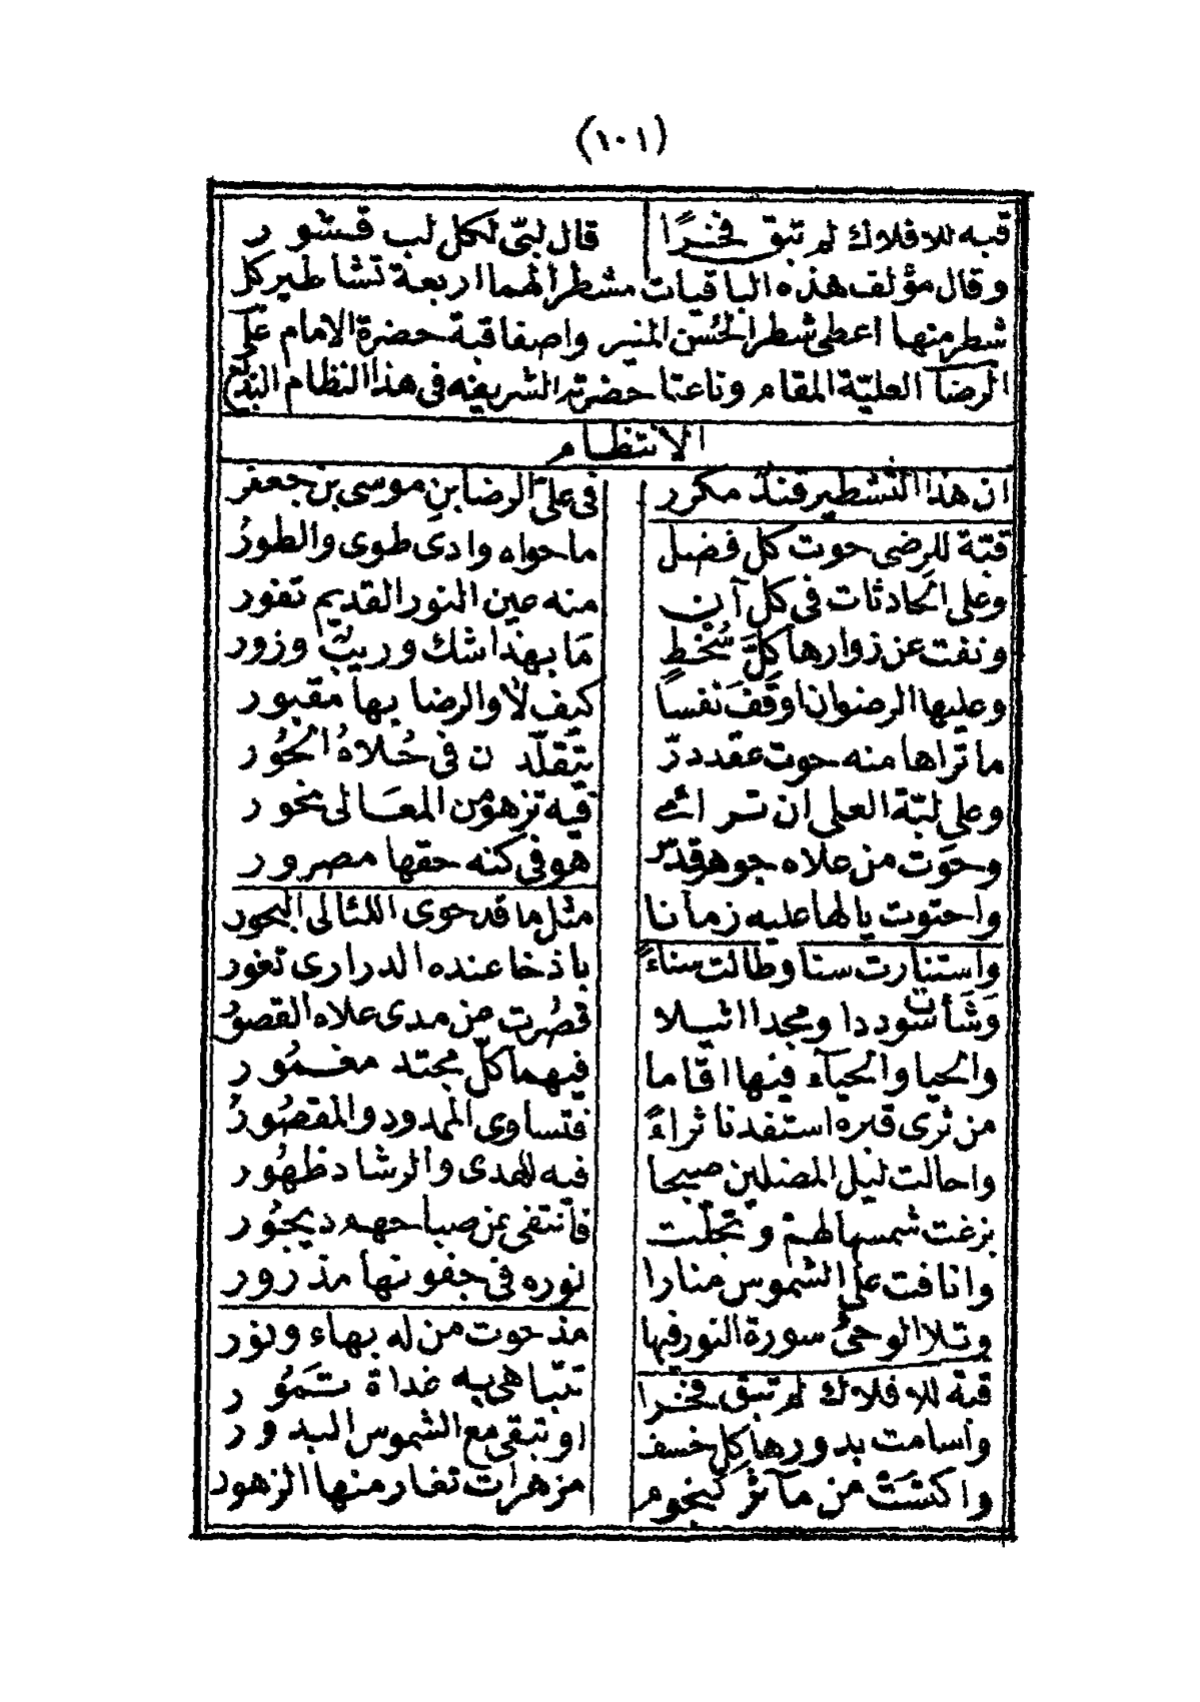 (١٠١)
قبه للافلاك لم تبق فخرًا قال لبّي لكل لب قشور
وقال مؤلف هذه الباقيات مشطرا لهما اربعة تشاطير كل
شطر منها اعطى شطر الحسن المنير واصفا قبة حضرة الامام على
الرضا العليّة المقام وناعتا حضرته الشريفه فى هذا النظام البديع
الانتظام
ان هذا التشطير قندٌ مكرر فى علىّ الرضا بنِ موسى بن جعفر
قبّة للرضى حوت كل فضل ما حواه وادى طوى والطورُ
وعلى الحادثات فى كل آن منه عين النور القديم تفور
ونفت عن زوارها كلَّ سُخْطٍ مَا بهذا شك وريبٌ وزور
وعليها الرضوان اوقَفَ نفسا كيف لا والرضا بها مقبور
ما تراها منه حوت عقد درّ تتقلّدن فى حُلاهُ الحُور
وعلى لبّة العلى ان ترائى فيه تزهو من المعَالى نحور
وحَوَت من علاه جوهر قدّس هو فى كنه حقها مصرور
واحتوت يالها عليه زمانا مثل ما قد حوى اللئالى البحور
واستنارت سنا وطالت سناءً باذخا عنده الدرارى تغور
وَشَأَت سوددا ومجدا اثيلا قصُرت من مدى علاه القصورُ
والحيا والحيآء فيها اقاما فيهما كلّ مجتد مغمُور
من ثرى قبره استفدنا ثراءً فتساوى الممدود والمقصُورُ
واحالت ليل المضلين صبحا فيه للهدى والرشاد ظهُور
بزغت شمسها لهمْ وتجلّت فانتفى من صباحهم ديجُور
وانافت على الشموس منارا نوره فى جفونها مذرور
وتلا الوحىُ سورة النور فيها مذ حوت من له بهاء ونور
قبّة للافلاك لم تبق فخرا تتباهى به غداة تَمُور
واسامت بدورها كل خسف او تبقى مع الشموس البدور
واكتسَت من مآثر كنجوم مزهرات تغار منها الزهور